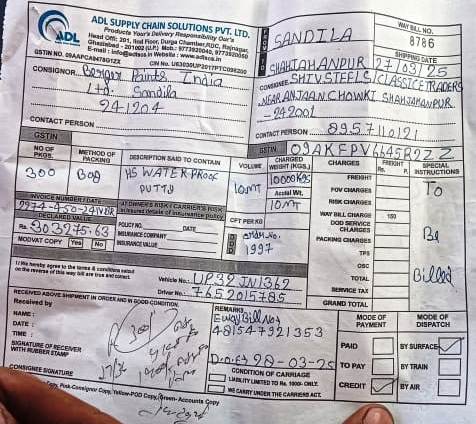 ADL
ADL SUPPLY CHAIN SOLUTIONS PVT. LTD.
Products Your's Delivery Responsibility Our's
Head Off: 201, IInd Floor, Durga Chamber, RDC, Rajnagar,
Ghaziabad - 201002 (U.P.) Mob.: 9773920049, 9773920050
E-mail : info@adlscs.in Website : www.adlscs.in
GSTIN NO. 09AAPCA8478G1ZX CIN No. U63030UP2017PTC098200
WAY BILL NO.
8786
SANDILA
SHIPPING DATE
SHAHJAHANPUR 27/03/25
CONSIGNOR Berger Paints India
Ltd. Sandila
241204
CONTACT PERSON
GSTIN
CONSIGNEE SHIV STEELS (CLASSIC E TRADERS
NEAR ANJAAN CHOWKI SHAHJAHANPUR
-242001
CONTACT PERSON 8957110121
GSTIN 09AKFPV6645R2ZZ
NO OF PKGS. METHOD OF PACKING DESCRIPTION SAID TO CONTAIN VOLUME CHARGED WEIGHT (KGS.) CHARGES FREIGHT Rs. P. SPECIAL INSTRUCTIONS
300 Bag HS WATER PROOF PUTTY 10MT 10000KGS
Actual Wt.
10MT
FREIGHT
FOV CHARGES
RISK CHARGES
WAY BILL CHARGE 150
DOD SERVICE CHARGES
PACKING CHARGES
TPS
OSC
TOTAL
SERVICE TAX
GRAND TOTAL
To
Be
Billed
INVOICE NUMBER / DATE
DECLARED VALUE
Rs. 303275.63
MODVAT COPY Yes No
AT OWNER'S RISK / CARRIER'S RISK
Insured details of insurance policy
POLICY NO. DATE
INSURANCE COMPANY
INSURANCE VALUE
CFT PER KG
1997
I / We hereby agree to the terms & conditions setout
on the reverse of this way bill are true and correct.
Vehicle No.: UP32JN1362
Driver No.: 7652015785
RECEIVED ABOVE SHIPMENT IN ORDER AND IN GOOD CONDITION.
Received by
NAME :
DATE :
TIME :
SIGNATURE OF RECEIVER
WITH RUBBER STAMP
CONSIGNEE SIGNATURE
REMARKS
Eway Bill No
481547921353
Date 28-03-25
CONDITION OF CARRIAGE
LIABILITY LIMITED TO Rs. 1000/- ONLY.
WE CARRY UNDER THE CARRIERS ACT.
MODE OF PAYMENT
PAID
TO PAY
CREDIT
MODE OF DISPATCH
BY SURFACE
BY TRAIN
BY AIR
Copy, Pink-Consignor Copy, Yellow-POD Copy, Green-Accounts Copy